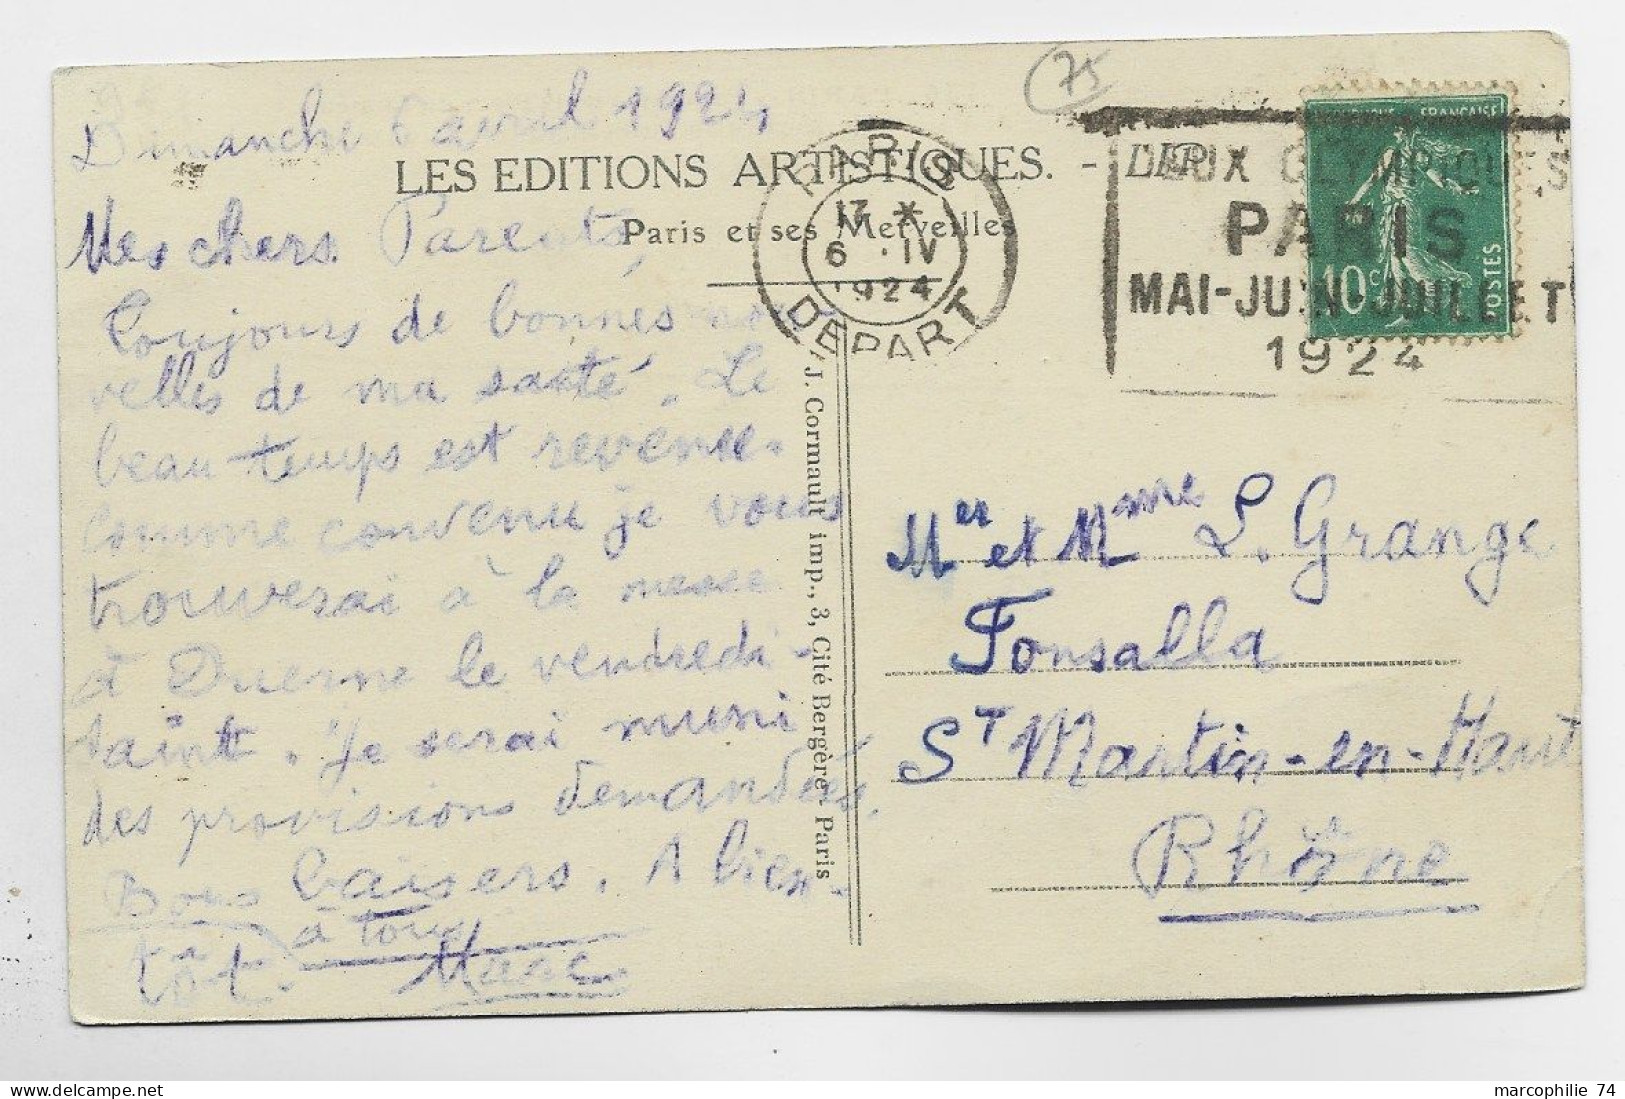 75
Dimanche 6 avril 1924
LES EDITIONS ARTISTIQUES. - LIP.
Paris et ses Merveilles
PARIS
17 *
6 · IV
1924
DEPART
JEUX OLYMPIQUES
PARIS
MAI-JUIN-JUILLET
1924
REPUBLIQUE FRANÇAISE
10c
POSTES
Mes chers Parents,
Toujours de bonnes nou
velles de ma santé. Le
beau temps est revenu.
Comme convenu je vous
trouverai à la messe
à Duerne le vendredi-
saint. Je serai muni
des provisions demandées.
Bons baisers. A bien-
tôt. à tous
Marc
J. Cormault imp., 3, Cité Bergère - Paris
Mer et Mme L. Grange
Fonsalla
St Martin-en-Haut
Rhône
marcophilie 74